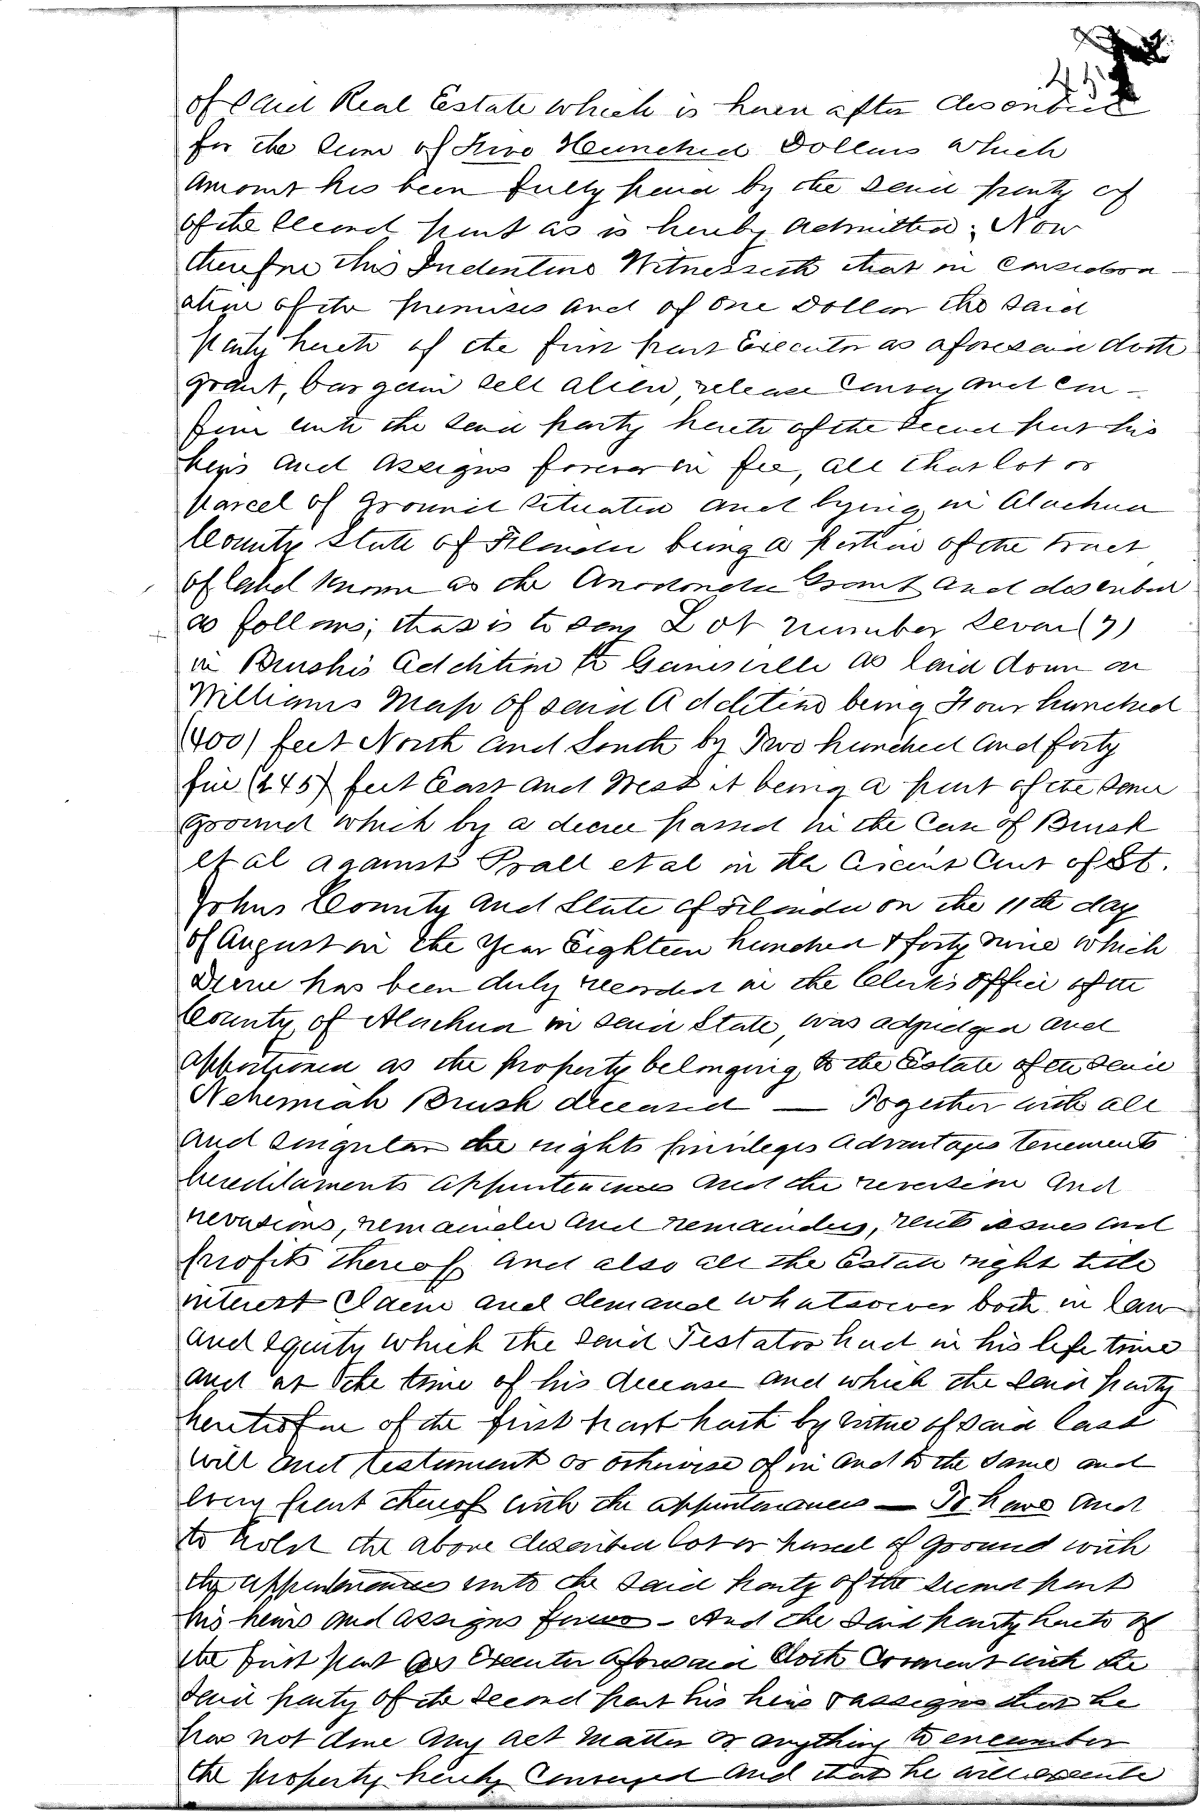 45
of said Real Estate which is herein after described
for the sum of Five Hundred Dollars which
amount has been fully paid by the said party of
of the second part as is hereby admitted; Now
therefore this Indenture Witnesseth that in consider-
ation of the premises and of One Dollar the said
party hereto of the first part Executor as aforesaid doth
grant, bargain sell alien, release Convey and con-
firm unto the said party hereto of the second part his
heirs and assigns forever in fee, all that lot or
parcel of ground situated and lying in Alachua
County State of Florida being a portion of the tract
of land known as the Arredondo Grant and described
as follows; that is to say Lot number seven (7)
in Brush's Addition to Gainesville as laid down on
Williams Map of said Addition being Four hundred
(400) feet North and South by Two hundred and forty
five (245) feet East and West it being a part of the same
ground which by a decree passed in the Case of Brush
et al against Prall et al in the Circuit Court of St.
Johns County and State of Florida on the 11th day
of August in the Year Eighteen hundred & forty nine which
Decree has been duly recorded in the Clerk's office of the
County of Alachua in said State, was adjudged and
apportioned as the property belonging to the Estate of the said
Nehemiah Brush deceased — Together with all
and singular the rights privileges advantages tenements
hereditaments appurtenances and the reversion and
reversions, remainder and remainders, rents issues and
profits thereof and also all the Estate right title
interest Claim and demand whatsoever both in law
and equity which the said Testator had in his life time
and at the time of his decease and which the said party
heretofore of the first part hath by virtue of said last
will and testament or otherwise of in and to the same and
every part thereof with the appurtenances — To have and
to hold the above described lot or parcel of ground with
the appurtenances unto the said party of the second part
his heirs and assigns forever - And the said party hereto of
the first part as Executor aforesaid doth Covenant with the
said party of the second part his heirs & assigns that he
has not done any act matter or anything to encumber
the property hereby Conveyed and that he will execute